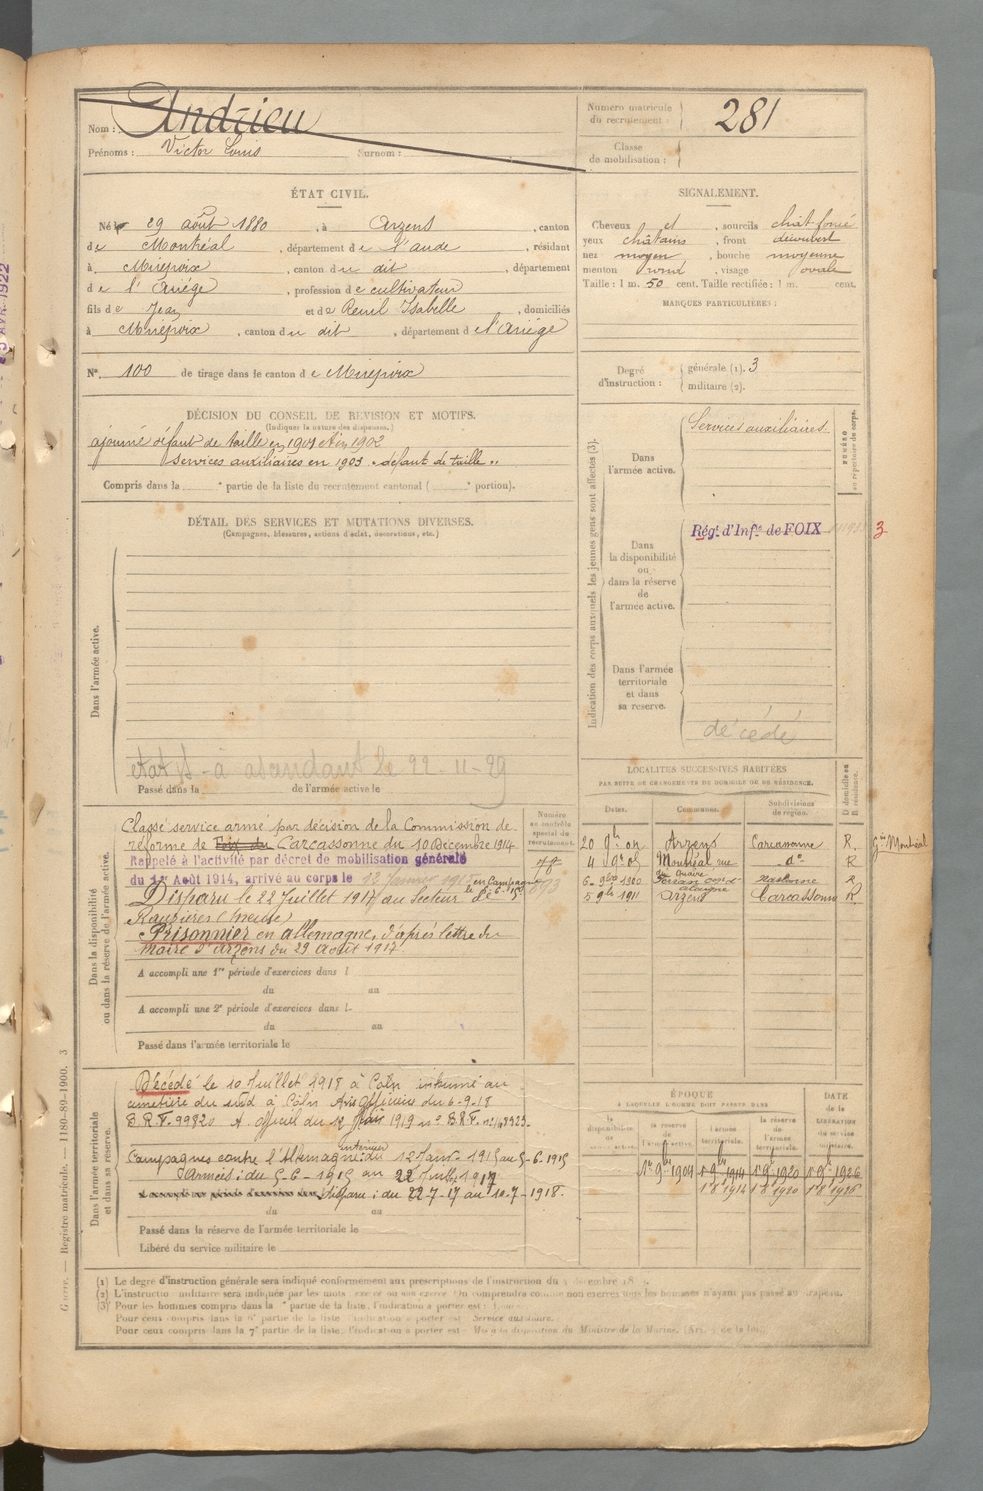 Nom : Andrieu
Prénoms : Victor Louis Surnom :
Numéro matricule du recrutement : 281
Classe de mobilisation :
ÉTAT CIVIL.
Né le 29 août 1880, à Arzens, canton
de Montréal, département de l'aude, résidant
à Mirepoix, canton du dit, département
de l'Ariège, profession de cultivateur
fils de Jean et de Reuil Isabelle, domiciliés
à Mirepoix, canton du dit, département de l'Ariège
N° 100 de tirage dans le canton de Mirepoix
SIGNALEMENT.
Cheveux et, sourcils chât foncé
yeux châtains, front découvert
nez moyen, bouche moyenne
menton rond, visage ovale
Taille : 1 m. 50 cent. Taille rectifiée : 1 m. cent.
MARQUES PARTICULIÈRES :
Degré d'instruction :
générale (1). 3
militaire (2).
DÉCISION DU CONSEIL DE REVISION ET MOTIFS.
(Indiquer la nature des dispenses.)
ajourné défaut de taille en 1901 et en 1902
services auxiliaires en 1903 "défaut de taille"
Compris dans la ° partie de la liste du recrutement cantonal ( ° portion).
DÉTAIL DES SERVICES ET MUTATIONS DIVERSES.
(Campagnes, blessures, actions d'éclat, décorations, etc.)
Dans l'armée active.
le 22-11-29
Passé dans la de l'armée active le
Indication des corps auxquels les jeunes gens sont affectés (3).
NUMÉRO au répertoire du corps.
Dans l'armée active.
Services auxiliaires
Dans la disponibilité ou dans la réserve de l'armée active.
Rég.t d'Inf.ie de FOIX
3
Dans l'armée territoriale et dans sa réserve.
décédé
Dans la disponibilité ou dans la réserve de l'armée active.
Numéro au contrôle spécial du recrutement.
Classé service armé par décision de la Commission de
réforme de Foix du Carcassonne du 10 Décembre 1914
Rappelé à l'activité par décret de mobilisation générale
du 1er Août 1914, arrivé au corps le 12 Janvier 1915 en Campagne
le 5-6-15
Disparu le 22 Juillet 1917 au Secteur de
(Meuse)
Prisonnier en allemagne, d'après lettre du
Maire d'Arzens du 29 Août 1917
A accompli une 1re période d'exercices dans l
du au
A accompli une 2e période d'exercices dans l
du au
Passé dans l'armée territoriale le
LOCALITÉS SUCCESSIVES HABITÉES
PAR SUITE DE CHANGEMENTS DE DOMICILE OU DE RÉSIDENCE.
Dates. Communes. Subdivisions de région. D domicile ou R résidence.
20 9bre 04 Arzens Carcassonne R. Gie Montréal
4 9bre 05 Montréal rue d° R
6- 9bre 1910 Narbonne R
5 9bre 1911 Arzens Carcassonne R
Dans l'armée territoriale et dans sa réserve.
Décédé le 10 Juillet 1918 à Cöln inhumé au
cimetière du sud à Cöln Avis Officiel du 6-9-18
B.R.F. 99820 A. officiel du 12 1919 n° B.R.F.
Campagnes contre l'Allemagne : intérieur du 12 Janv. 1915 au 5-6-1915
Armées : du 5-6-1915 au 22 Juillet 1917
disparu : du 22-7-17 au 10-7-1918.
du au
Passé dans la réserve de l'armée territoriale le
Libéré du service militaire le
ÉPOQUE
À LAQUELLE L'HOMME DOIT PASSER DANS
DATE de la LIBÉRATION du service militaire.
la disponibilité de l'armée active. la réserve de l'armée active. l'armée territoriale. la réserve de l'armée territoriale.
1er 9bre 1904 1er 9bre 1914 1er 9bre 1920 1er 9bre 1926
1er 8bre 1914 1er 8bre 1920 1er 8bre 1926
(1) Le degré d'instruction générale sera indiqué conformément aux prescriptions de l'instruction du
(2) L'instruction militaire sera indiquée par les mots : exercé ou non exercé. On comprendra comme non exercés tous les hommes n'ayant pas passé au drapeau.
(3) Pour les hommes compris dans la ° partie de la liste, l'indication à porter est :
Pour ceux compris dans la 6e partie de la liste l'indication à porter est Service auxiliaire.
Pour ceux compris dans la 7e partie de la liste, l'indication à porter est Mis à la disposition du Ministre de la Marine.
Guerre. — Registre matricule. — 1180-89-1900. 3
AVR. 1922